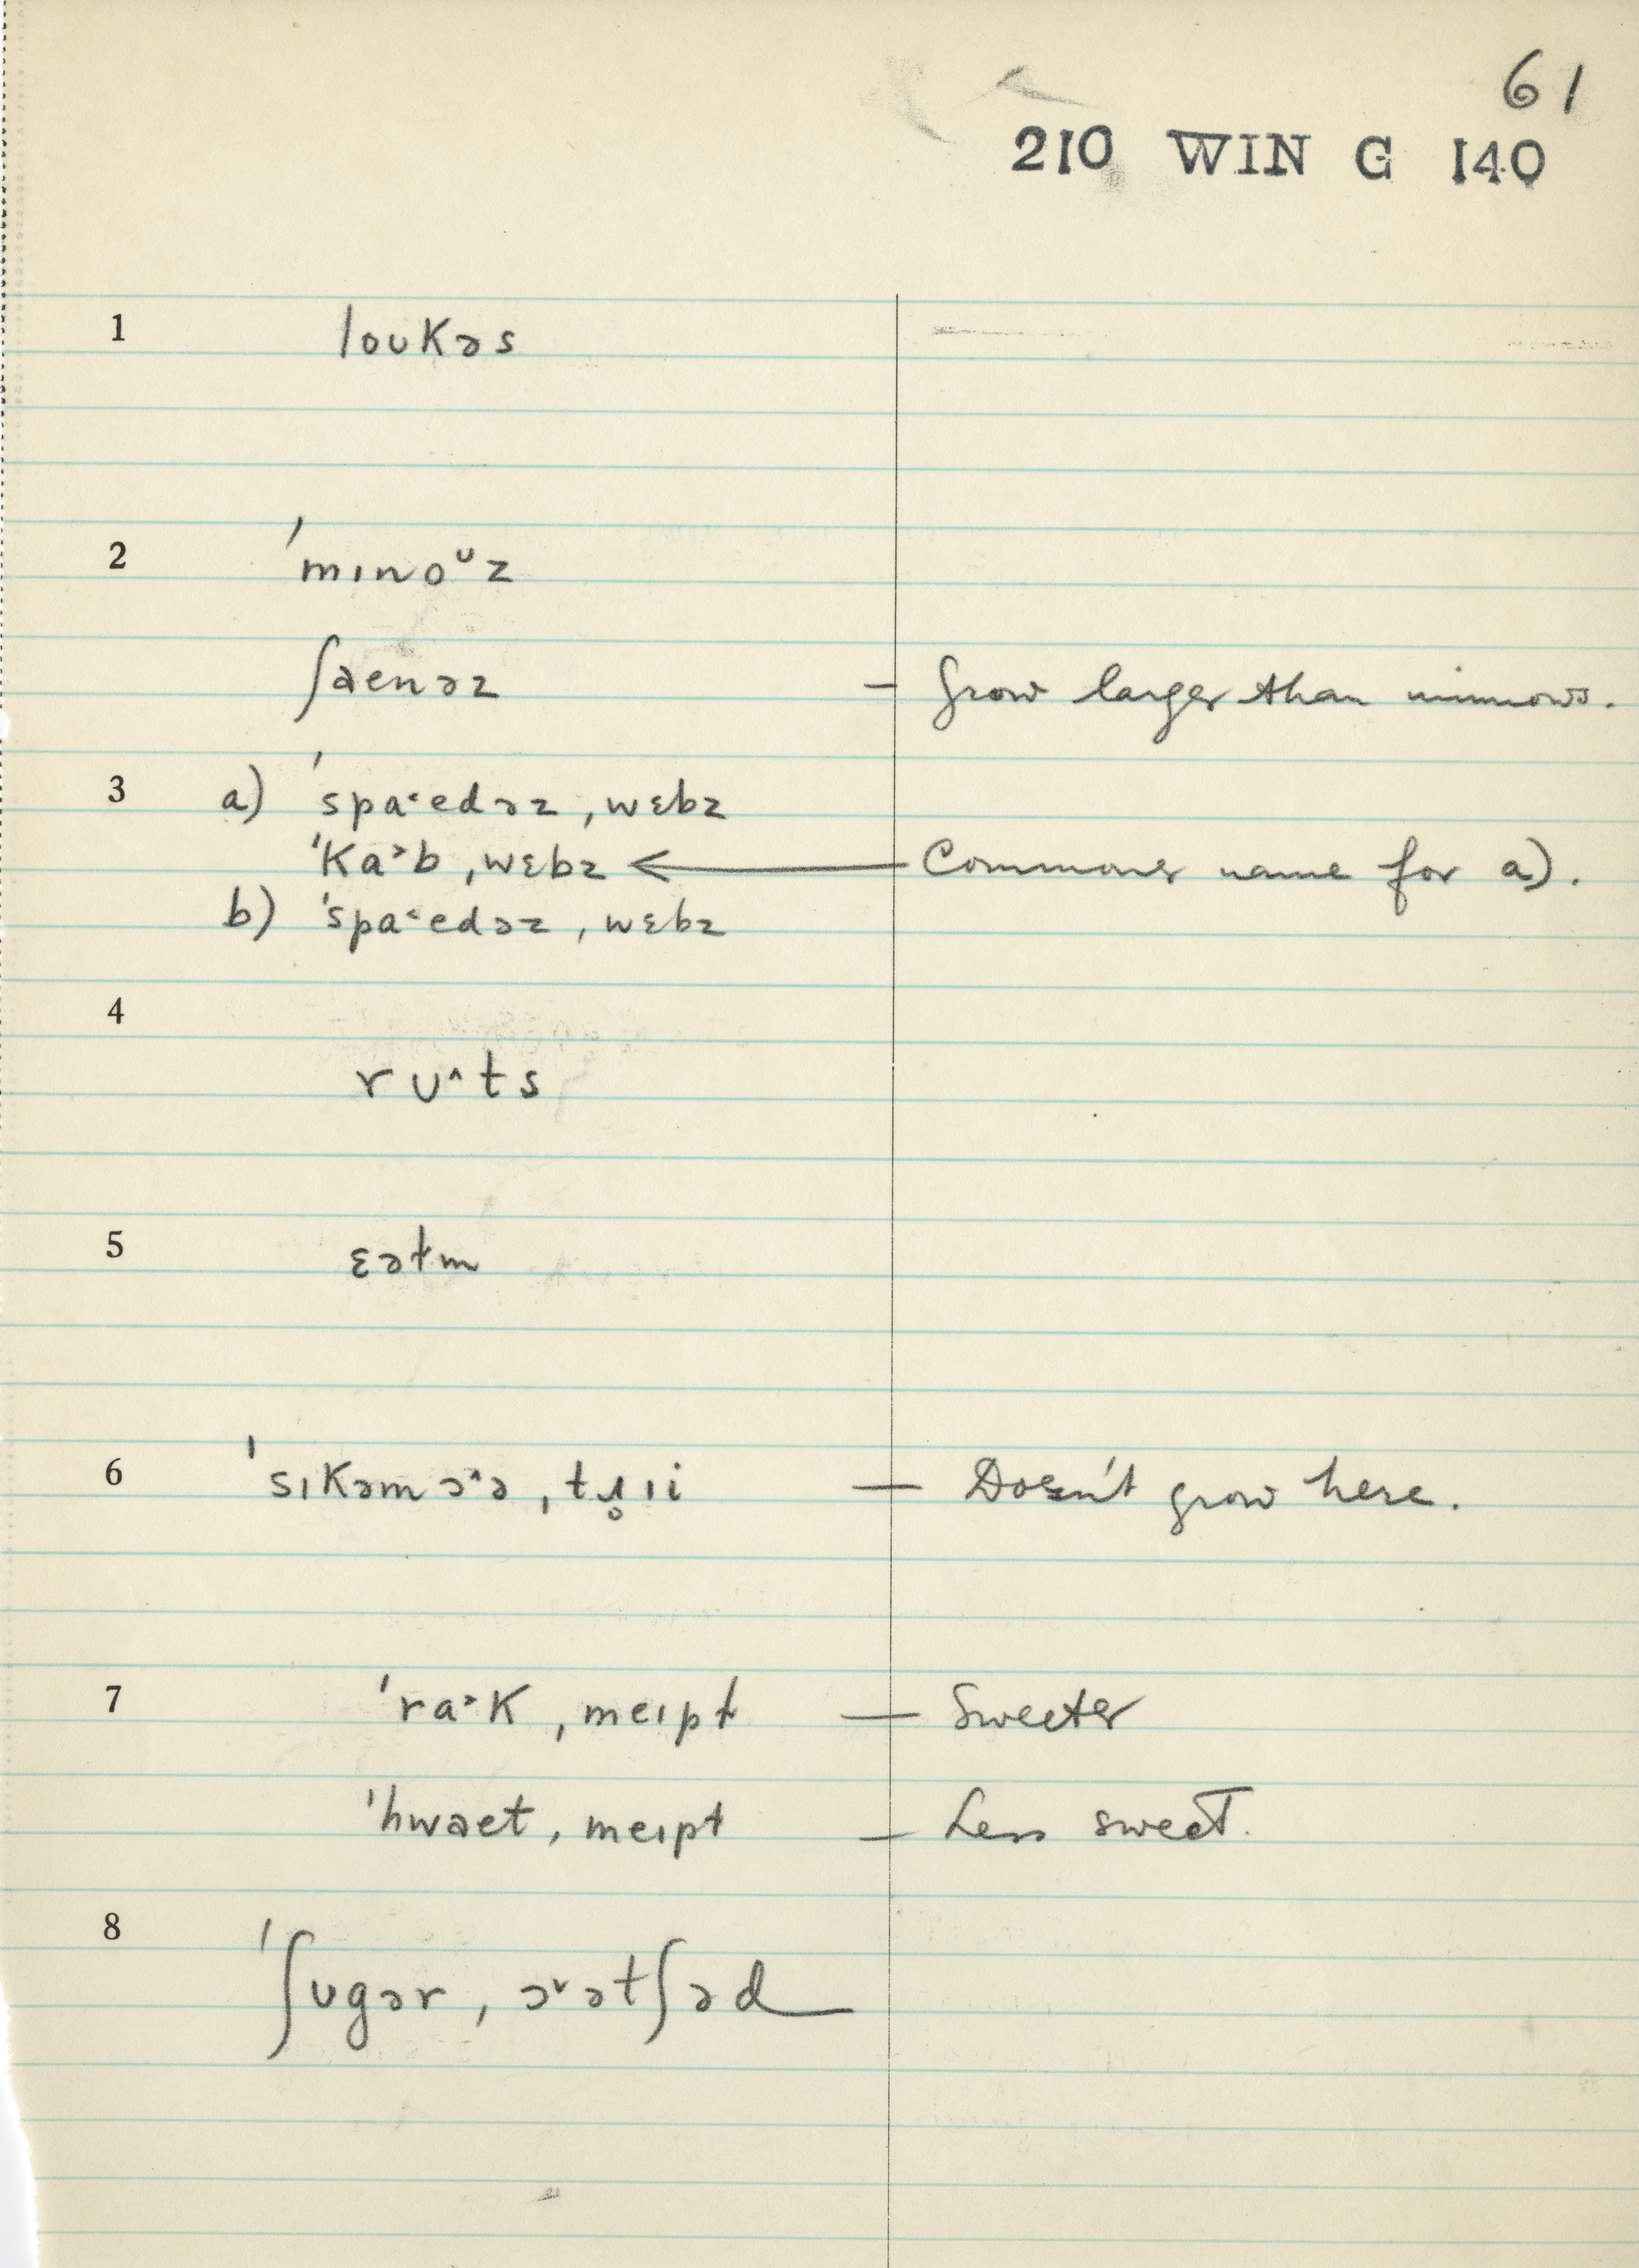 61
210 WIN G 140
1 loukəs
2 ˈmɪnoᶷz
ʃaenəz – Grow larger than minnows.
3 a) ˈspa˂edəz ˌwɛbz
ˈka˃b ˌwɛbz ← Commoner name for a).
b) ˈspa˂edəz ˌwɛbz
4 rʊ^ts
5 ɛəɫm
6 ˈsɪkəmɔ^ə ˌtɹ̥ɪi — Doesn't grow here.
7 ˈra˃k ˌmeɪpɫ — Sweeter
ˈhwaet ˌmeɪpɫ – Less sweet.
8 ˈʃugər ˌɔ˅ətʃəd